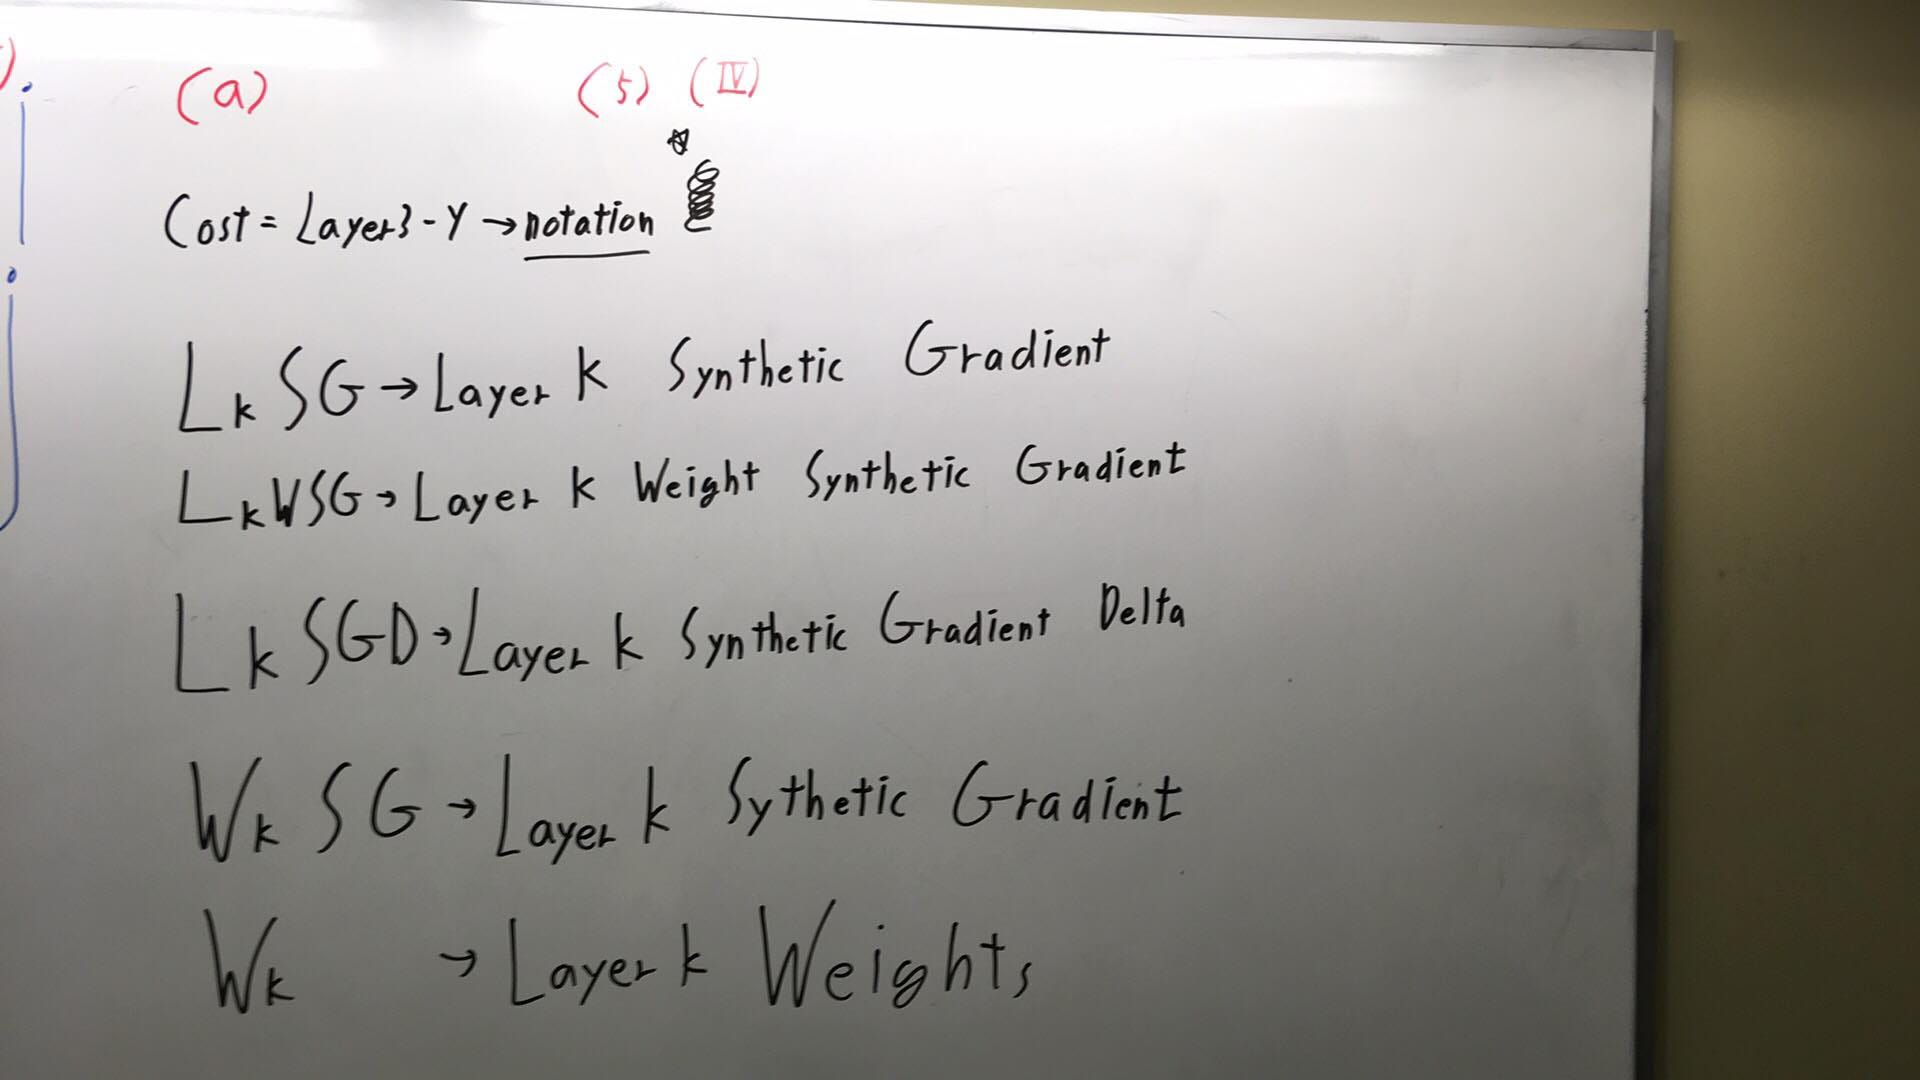 (a) (5) (IV)
Cost = Layer3 - Y → notation
LₖSG → Layer k Synthetic Gradient
LₖWSG → Layer k Weight Synthetic Gradient
LₖSGD → Layer k Synthetic Gradient Delta
WₖSG → Layer k Sythetic Gradient
Wₖ → Layer k Weights